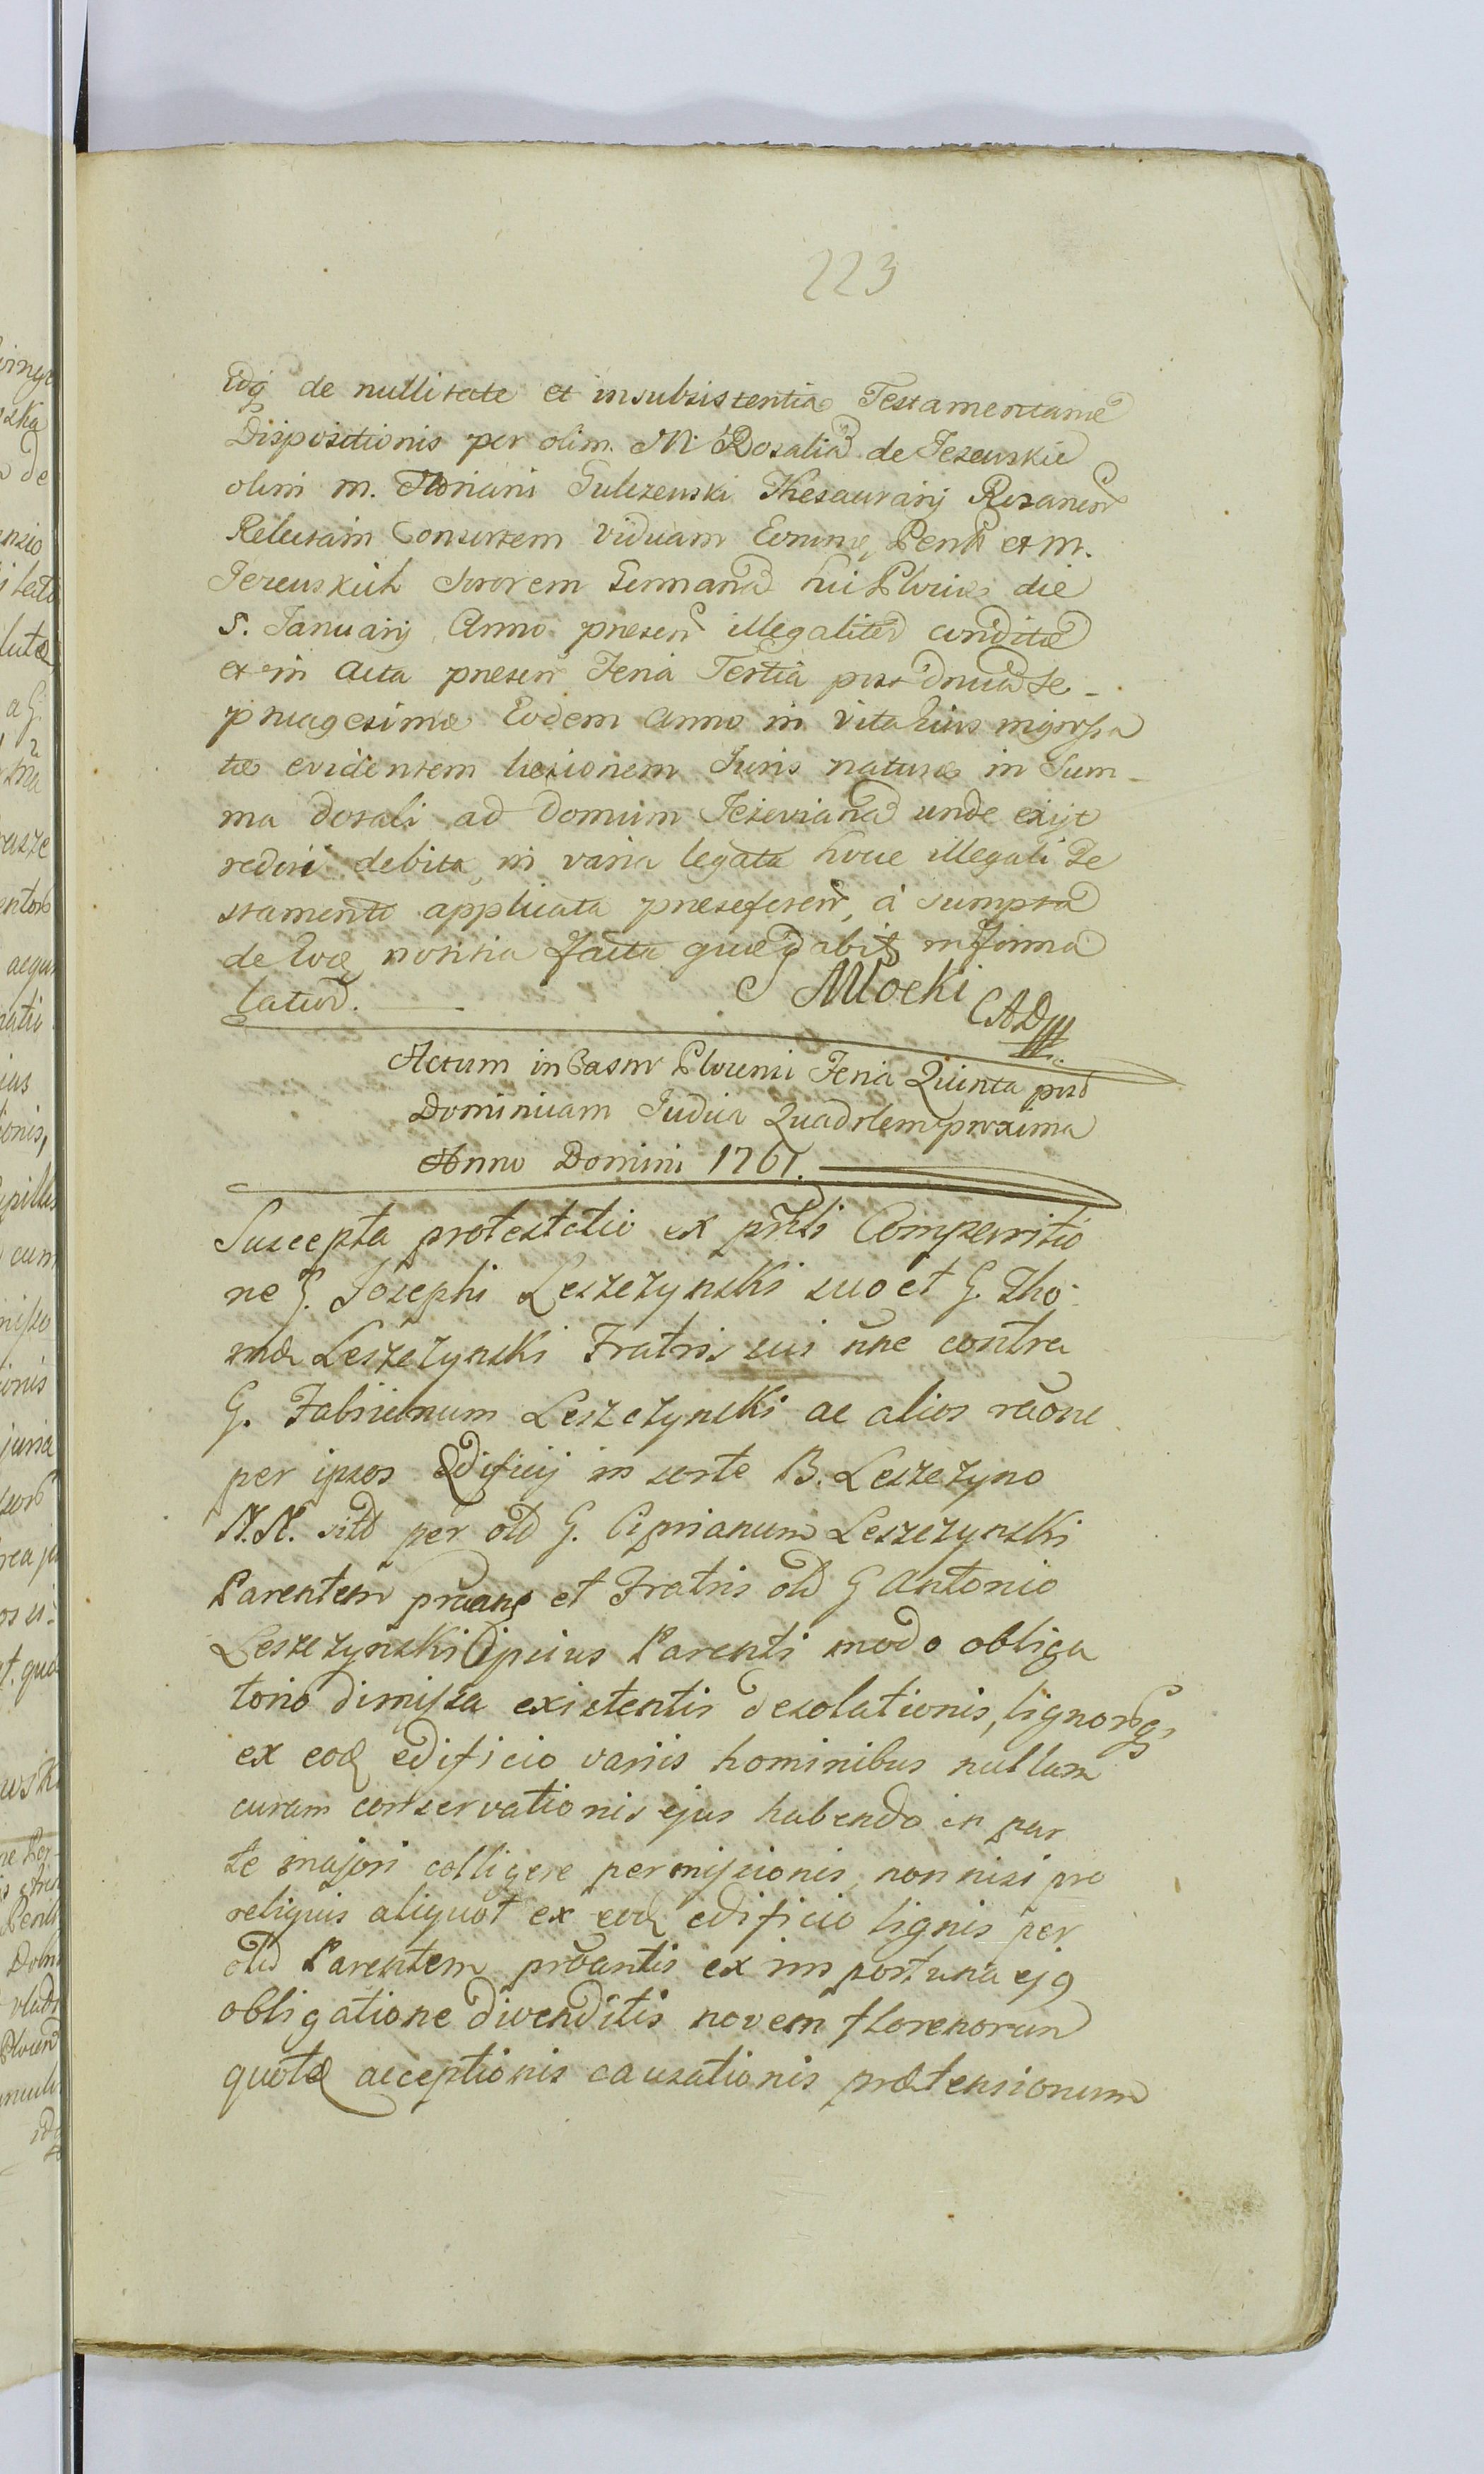 223
Idq de nullitate et insubsistentia Testamentariae
Dispositionis per olim. M. Rosaliam de Jezewskie
olim M. Floriani Gulczewski Thesaurarij Rozanen
Relictam Consortem Viduam et M.
Jezewskich Sororem Germanam hic Plociae die
5. Januarij Anno presen illegaliter conditae
et in Acta presen Feria Tertia post dnicam Se-
ptuagesimae Eodem Anno in vita Eius ingrossa
tae evidentem laesionem Juris naturae in Sum-
ma dotali ad Domum Jezevianam unde exijt
rediri debita, in varia legata hocce illegali Te
stamento applicata praeseferen, à sumpta
de Eoq notitia facta in forma
latiori.
Mlocki CAD
Actum in Castro Plocensi Feria Quinta post
Dominicam Judica Quadrlem proxima
Anno Domini 1761.
Suscepta protestatio ex prnti Comparitio
ne G. Josephi Leszczynski suo et G. Tho-
mae Leszczynski Fratris sui nne contra
G. Fabianum Leszczynski ac alios raone
per ipsos Edificij in sorte B. Leszczyno
N.N. sitt per old G. Ciprianum Leszczynski
Parentem et Fratris old G Antonio
Leszczynski ipsius Parenti modo obliga
torio dimissa existentis desolationis, lignorqs
ex eoq edificio variis hominibus nullam
curam conservationis ejus habendo in par
te majori colligere permissionis, non nisi pro
reliquis aliquot ex eoq edificio lignis per
old Parentem proantis ex importuna ej9
obligatione divenditis novem florenorum
quotae acceptionis causationis praetensionum